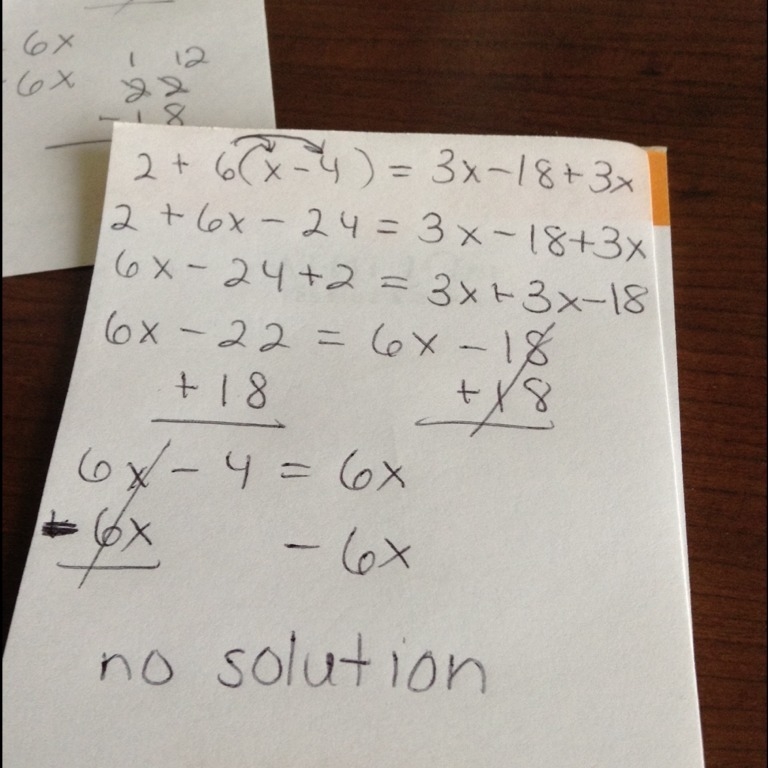 6x
- 6x
1 12
22
- 18
2 + 6(x - 4) = 3x - 18 + 3x
2 + 6x - 24 = 3x - 18 + 3x
6x - 24 + 2 = 3x + 3x - 18
6x - 22 = 6x - 18
+ 18 + 18
6x - 4 = 6x
- 6x - 6x
no solution